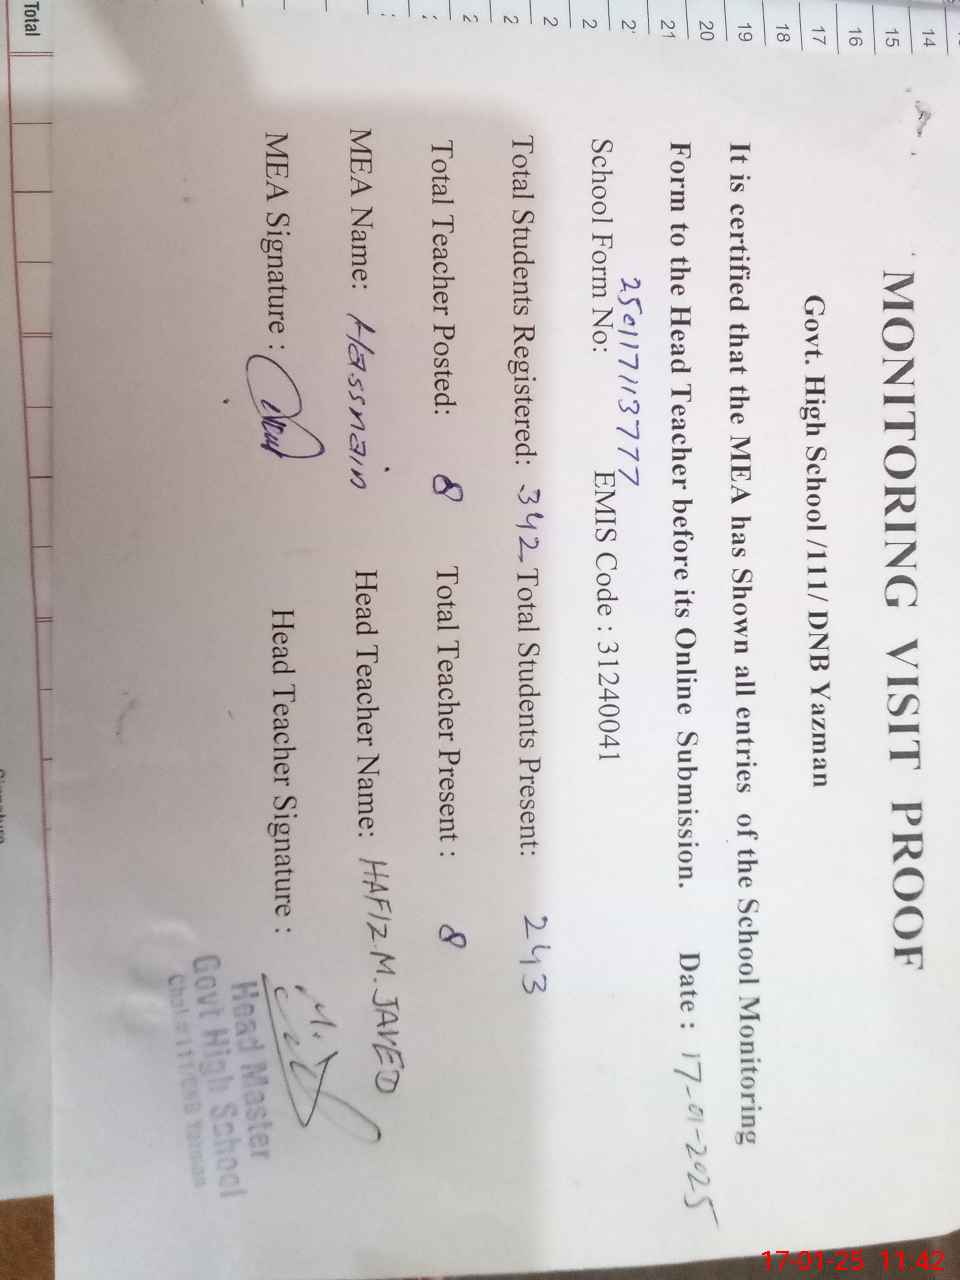 MONITORING VISIT PROOF
Govt. High School /111/ DNB Yazman
It is certified that the MEA has Shown all entries of the School Monitoring
Form to the Head Teacher before its Online Submission. Date : 17-01-2025
250117113777
School Form No: EMIS Code : 31240041
Total Students Registered: 342 Total Students Present: 243
Total Teacher Posted: 8 Total Teacher Present : 8
MEA Name: Hassnain Head Teacher Name: HAFIZ M. JAVED
MEA Signature : Head Teacher Signature :
Head Master
Govt High School
14
15
16
17
18
19
20
21
Total
17-01-25 11:42